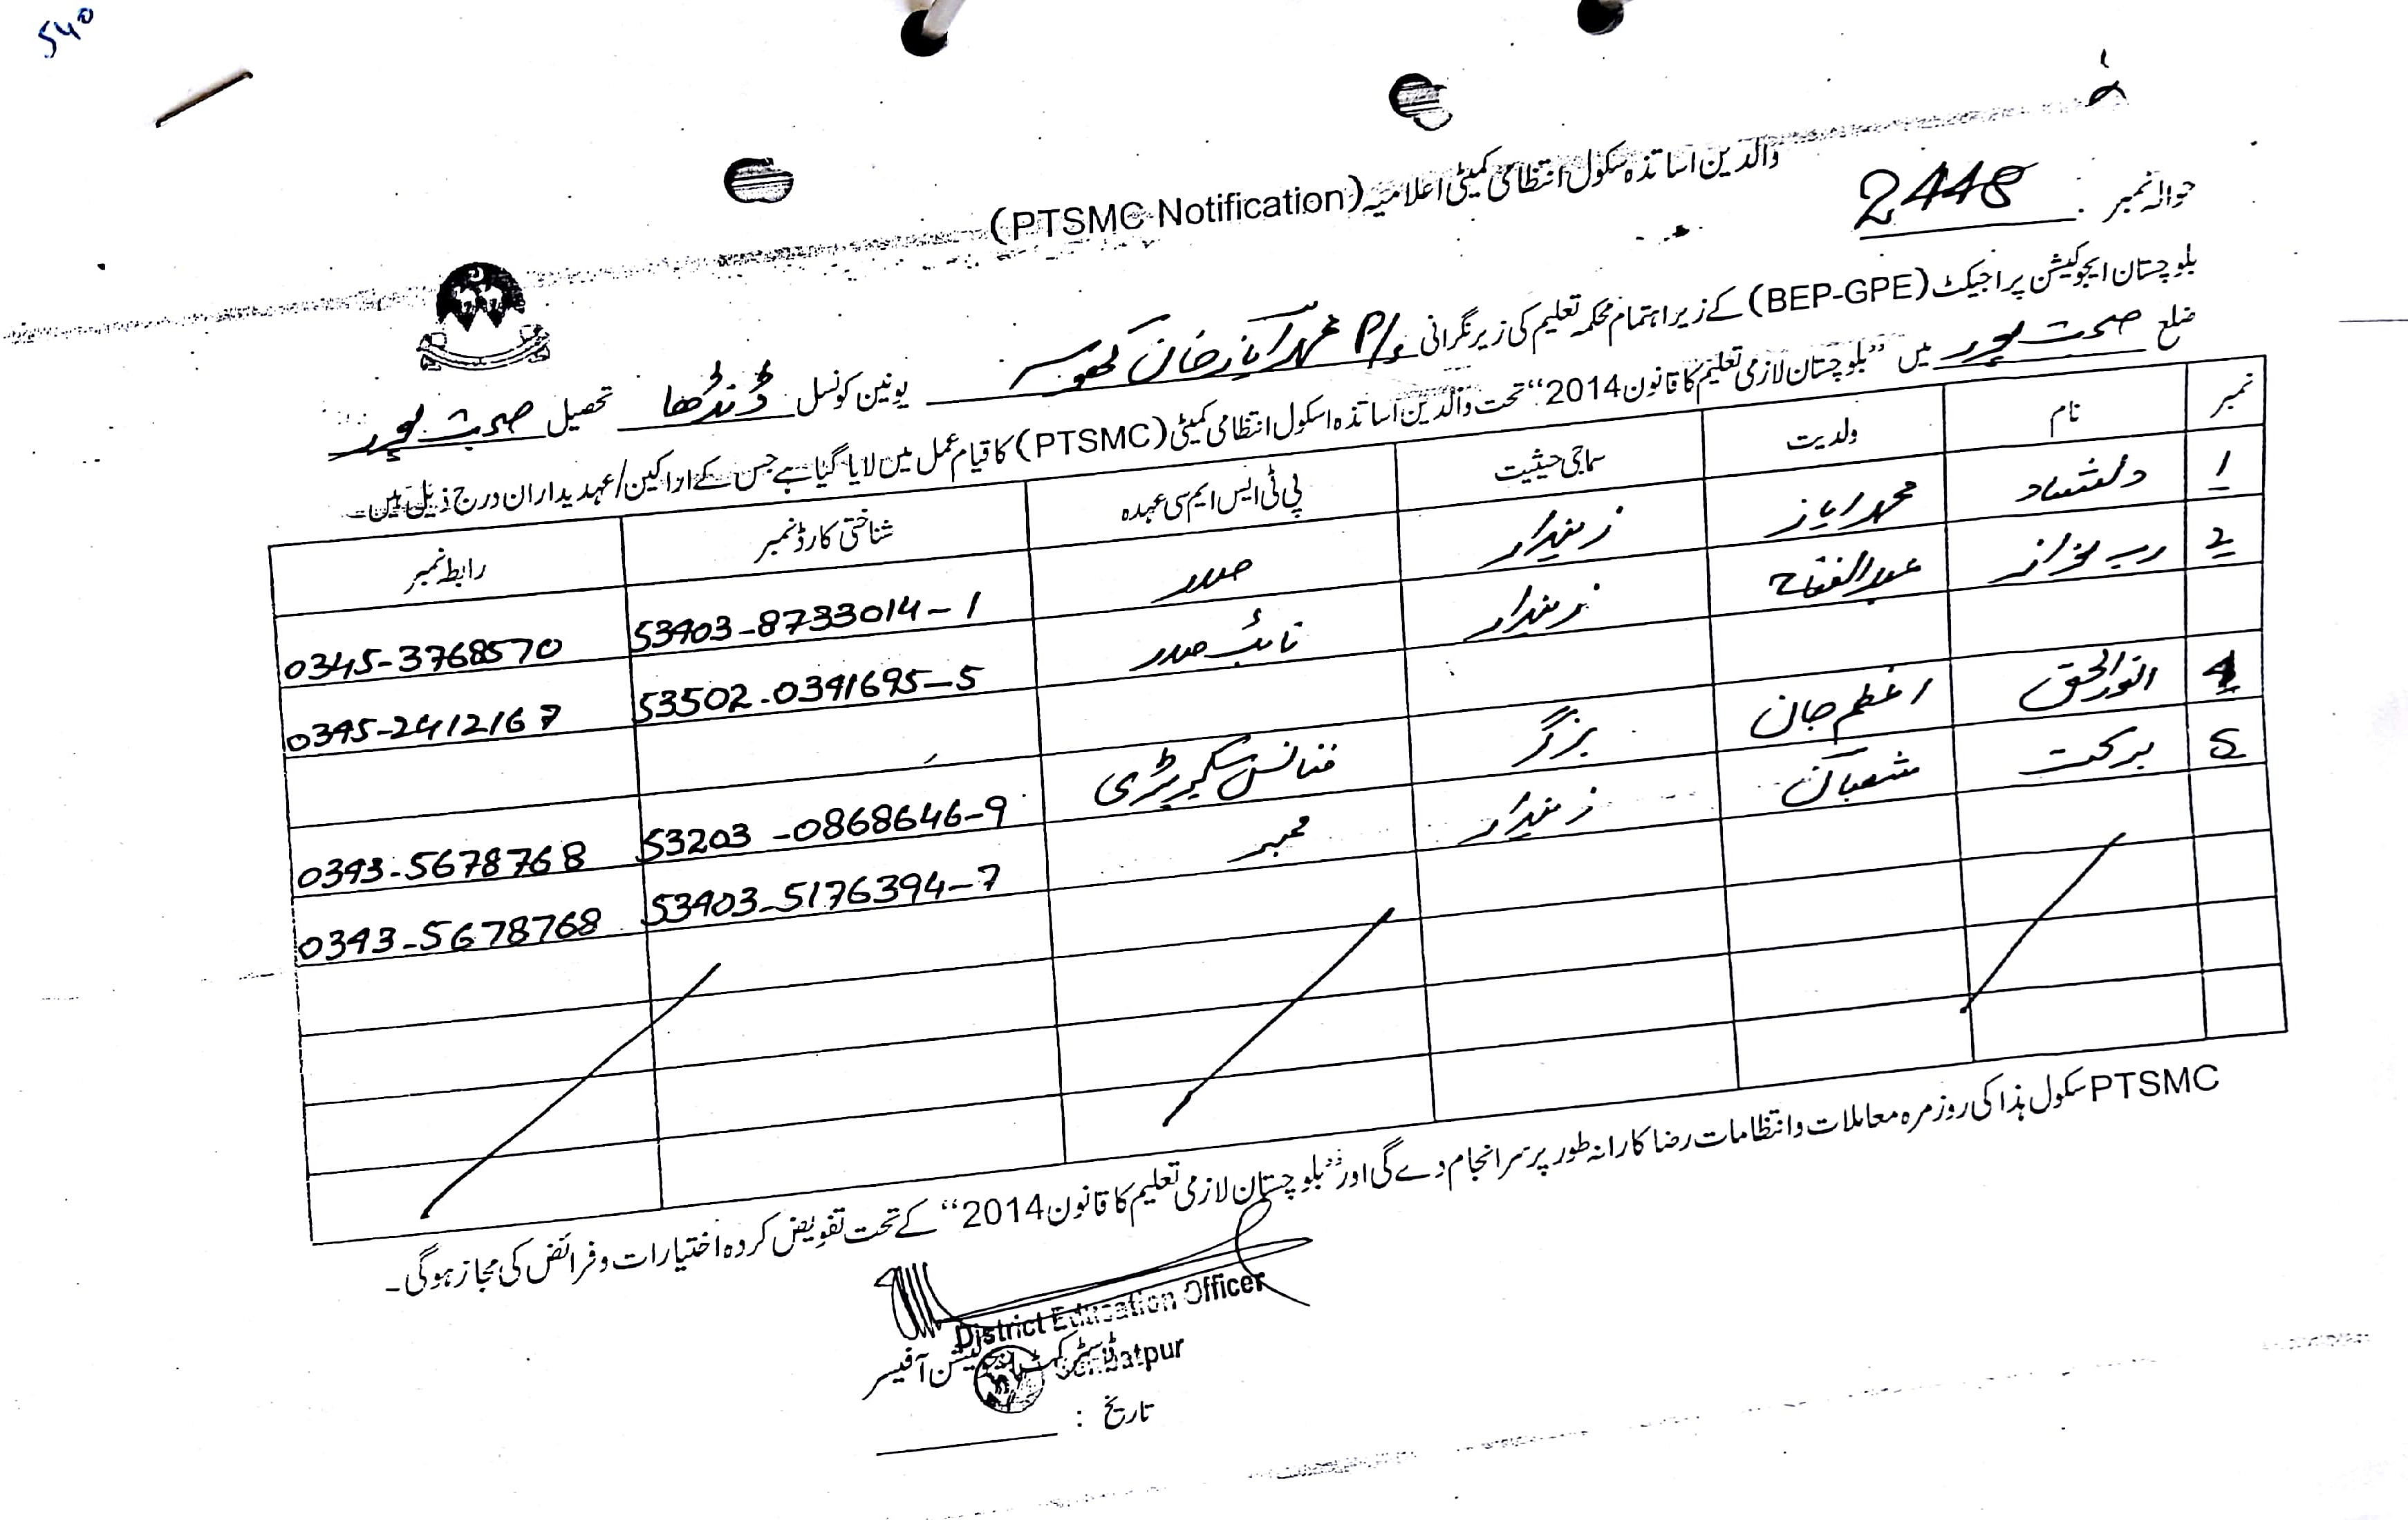 540
والدین اساتذہ سکول انتظامی کمیٹی اعلامیہ (PTSMC Notification)
حوالہ نمبر 2448
بلوچستان ایجوکیشن پراجیکٹ (BEP-GPE) کے زیر اہتمام محکمہ تعلیم کی زیر نگرانی P/s محمد ایاز خان کھوسہ یونین کونسل تحصیل صحبت پور
ضلع صحبت پور میں "بلوچستان لازمی تعلیم کا قانون 2014" تحت والدین اساتذہ اسکول انتظامی کمیٹی (PTSMC) کا قیام عمل میں لایا گیا ہے جس کے اراکین/عہدیداران درج ذیل ہیں۔
نمبر نام ولدیت سماجی حیثیت پی ٹی ایس ایم سی عہدہ شناختی کارڈ نمبر رابطہ نمبر
1 دلشاد محمد ایاز زمیندار صدر 53403-8733014-1 0345-3768570
2 رب نواز عبدالفتاح زمیندار نائب صدر 53502-0341695-5 0345-2412167
4 انورالحق اعظم جان بزگر فنانس سیکریٹری 53203-0868646-9 0343-5678768
5 برکت شعبان زمیندار ممبر 53403-5176394-7 0343-5678768
PTSMC سکول ہذا کی روزمرہ معاملات و انتظامات رضا کارانہ طور پر سرانجام دے گی اور "بلوچستان لازمی تعلیم کا قانون 2014" کے تحت تفویض کردہ اختیارات و فرائض کی مجاز ہوگی۔
District Education Officer
Sohbatpur
ڈسٹرکٹ ایجوکیشن آفیسر
تاریخ :